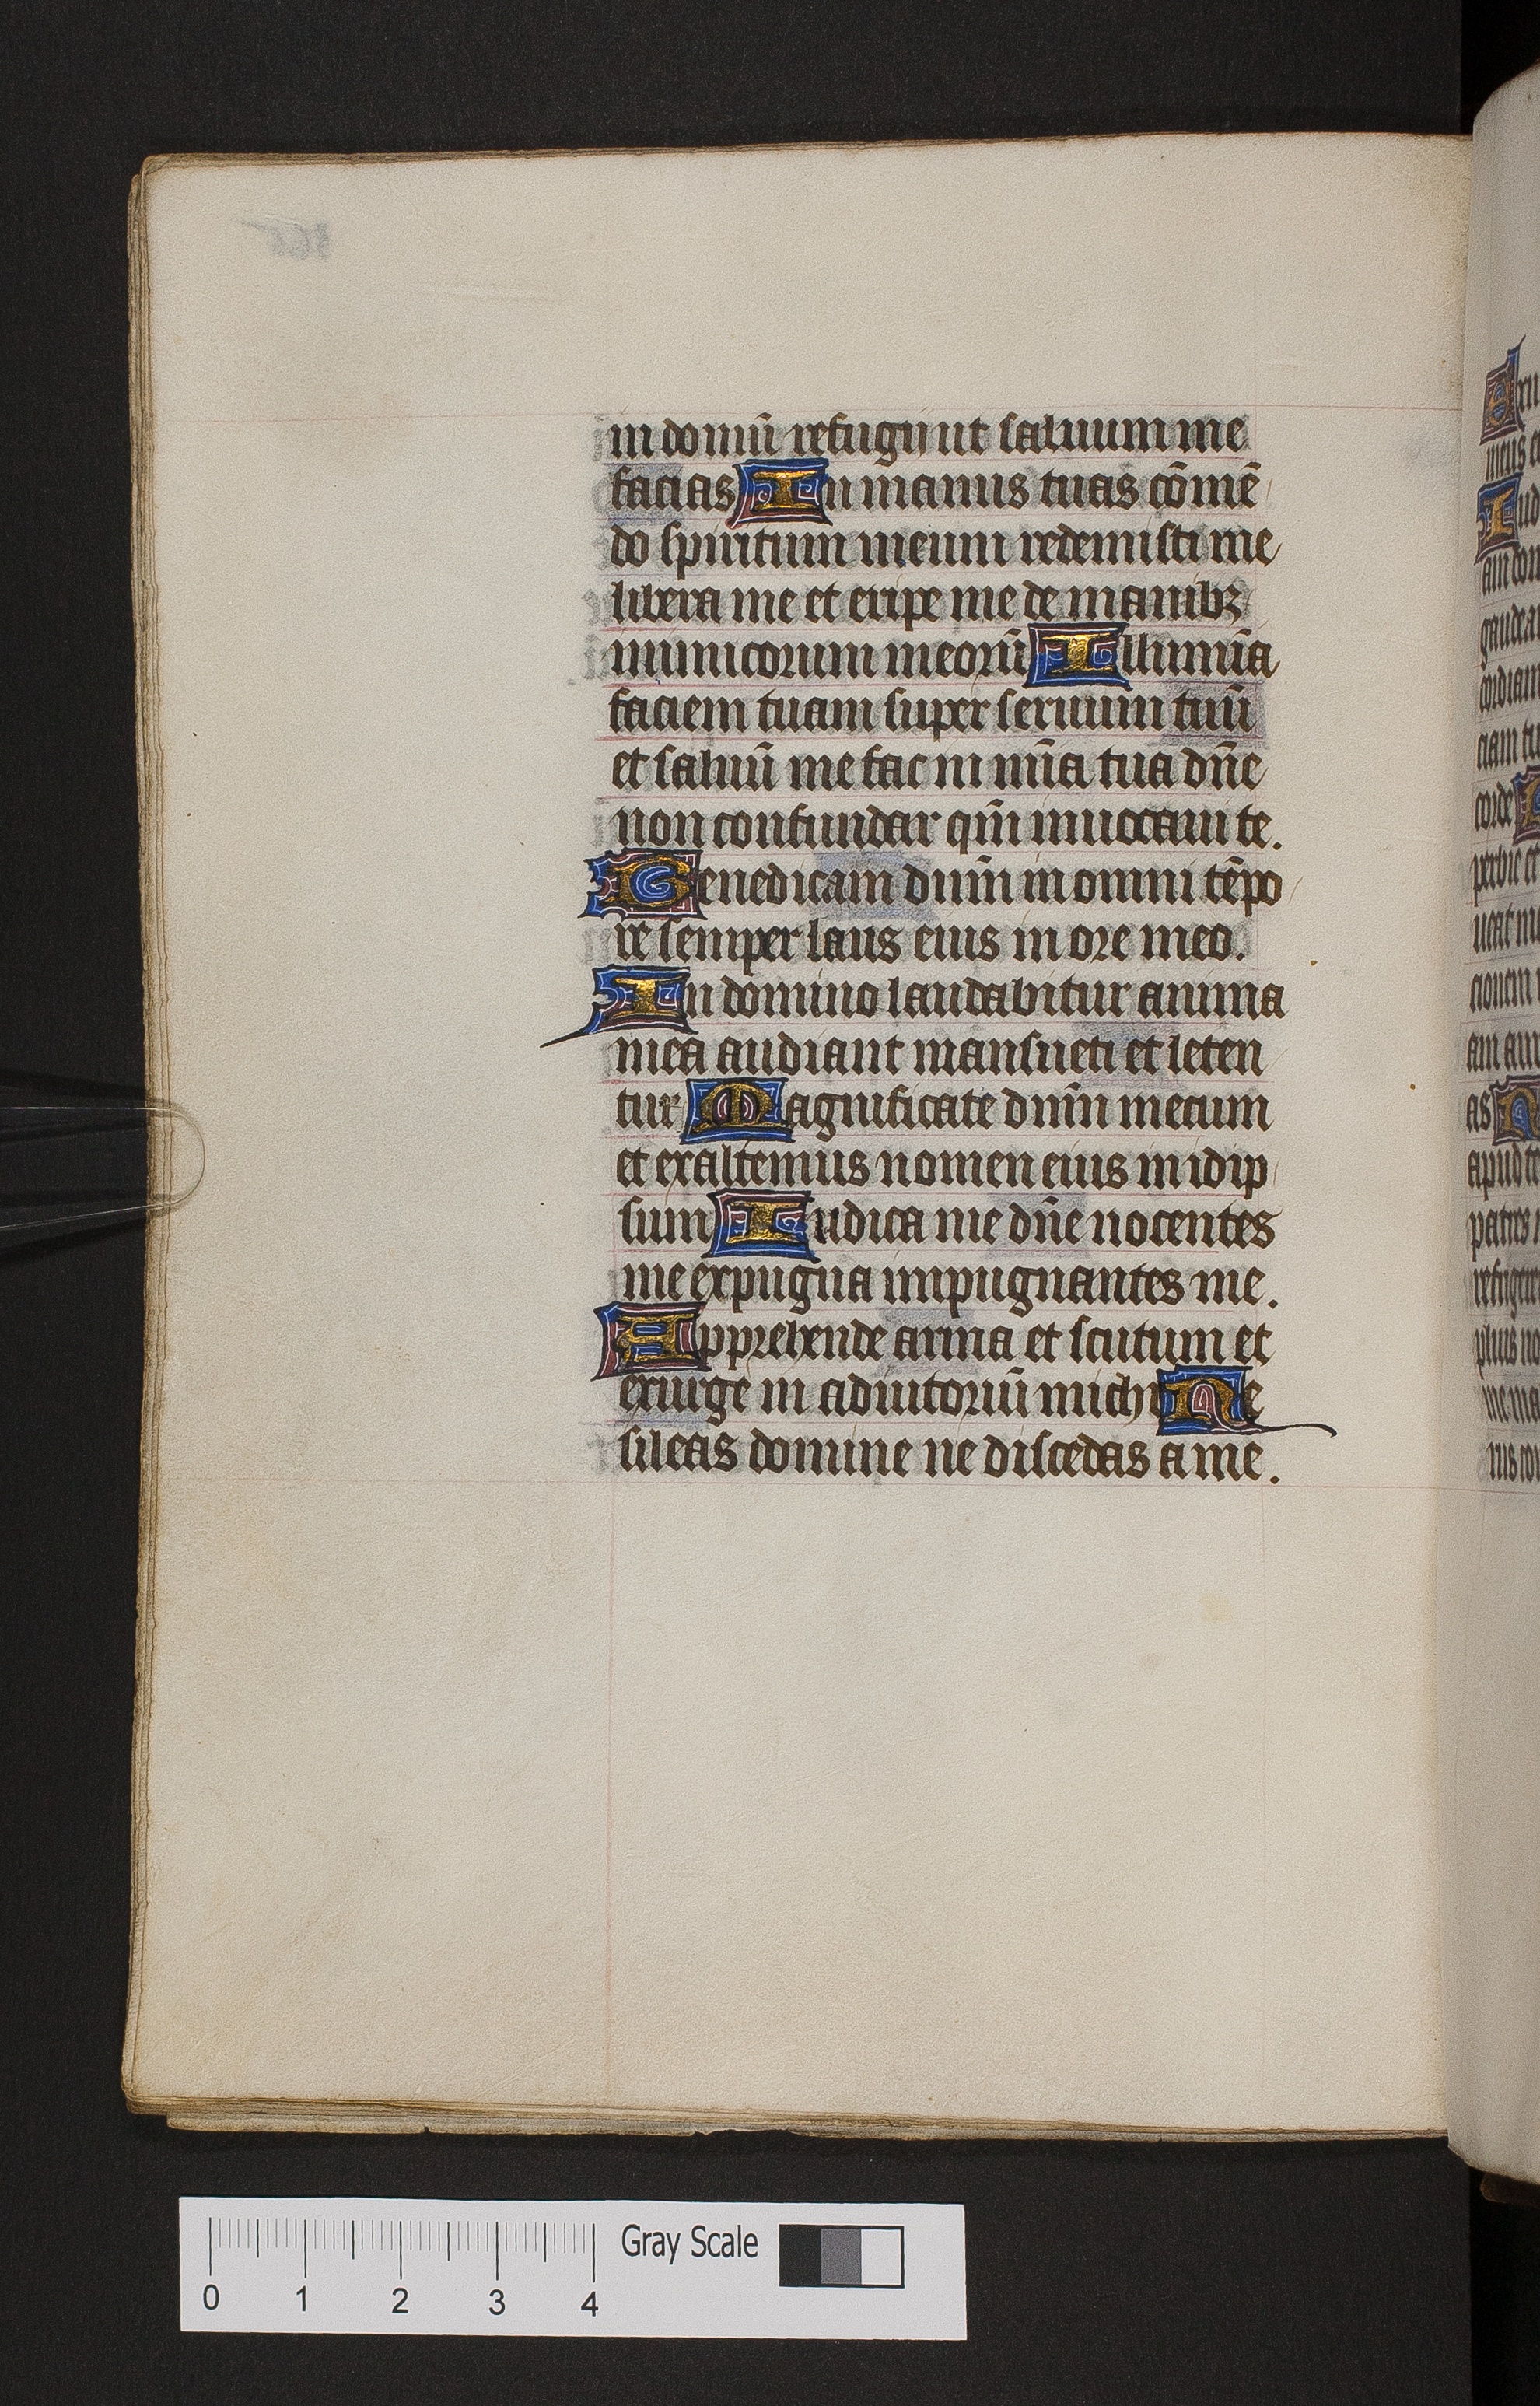 in domū refugij ut saluum me
facias In manus tuas cōmē
do spiritum meum redemisti me
libera me et eripe me de manibꝫ
inimicorum meorū Illumīa
faciem tuam super seruum tuū
et saluū me fac in mīa tua dn̄e
non confundar qm̄ inuocaui te.
Benedicam dn̄m in omni tēpo
re semper laus eius in ore meo.
In domino laudabitur anima
mea audiant mansueti et leten
tur Magnificate dn̄m mecum
et exaltemus nomen eius in idip
sum Iudica me dn̄e nocentes
me expugna impugnantes me.
Apprehende arma et scutum et
exurge in adiutoriū michi Ne
sileas domine ne discedas a me.
Gray Scale
0 1 2 3 4